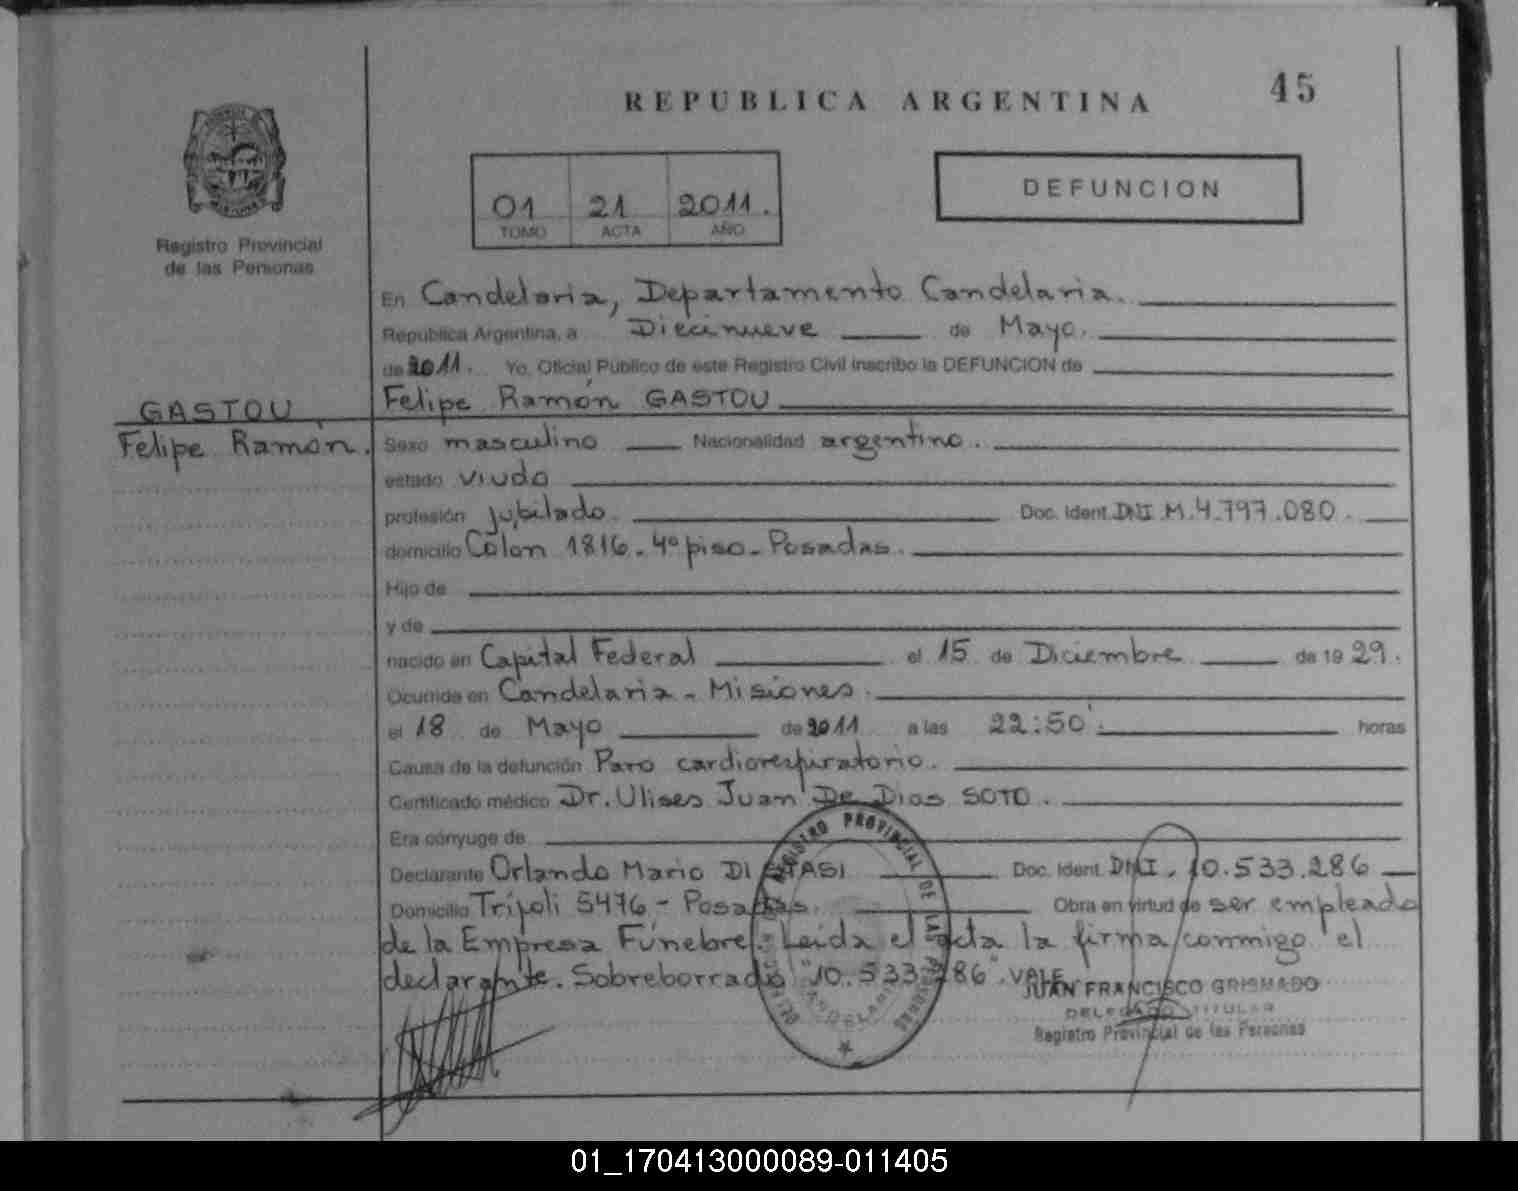 45
REPUBLICA ARGENTINA
01 21 2011.
TOMO ACTA AÑO
DEFUNCION
Registro Provincial
de las Personas
En Candelaria, Departamento Candelaria.
República Argentina, a Diecinueve de Mayo.
de 2011. Yo, Oficial Público de este Registro Civil inscribo la DEFUNCION de
Felipe Ramón GASTOU
GASTOU
Felipe Ramón.
Sexo masculino Nacionalidad argentino.
estado viudo
profesión jubilado. Doc. Ident. DNI.M.4.797.080.
domicilio Colón 1816. 4º piso - Posadas.
Hijo de
y de
nacido en Capital Federal el 15 de Diciembre de 19 29.
Ocurrida en Candelaria - Misiones.
el 18 de Mayo de 2011 a las 22:50'. horas
Causa de la defunción Paro cardiorespiratorio.
Certificado médico Dr. Ulises Juan De Dios SOTO.
Era cónyuge de
Declarante Orlando Mario DI STASI Doc. Ident. DNI. 10.533.286
Domicilio Trípoli 5476 - Posadas. Obra en virtud de ser empleado
de la Empresa Fúnebre. Leída el acta la firma conmigo el
declarante. Sobreborrado "10.533.286" VALE
REGISTRO PROVINCIAL DE LAS PERSONAS
CANDELARIA
JUAN FRANCISCO GRISMADO
DELEGADO TITULAR
Registro Provincial de las Personas
01_170413000089-011405